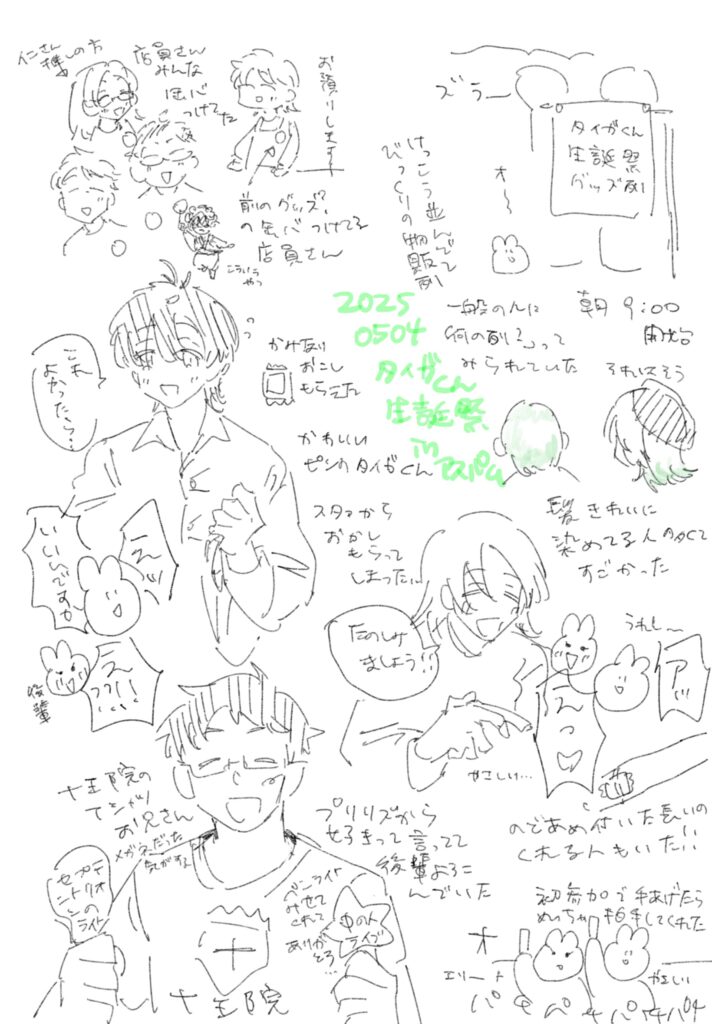 仁さん
推しの方
店員さん
みんな
缶バ
つけてた
お預りします
前のグッズ?
の缶バつけてる
店員さん
こういう
やつ
けっこう並んでて
びっくりの物販列
ズラー
オ〜
タイガくん
生誕祭
グッズ列
朝 9:00
開始
2025
0504
タイガくん
生誕祭
in
アスパム
一般の人に
何の列?って
みられていた
それはそう
これ
よかったら…
かみあり
おこし
もらえた
かわいい
ピンのタイガくん
髪きれいに
染めてる人多くて
すごかった
えッ
いいんですか
えっ!!!
後輩
スタァから
おかし
もらって
しまった…
たのしみ
ましょう!!
うれし〜
アッ
えっ♡
やさしい…
のであめ付いた長いの
くれる人もいた!!
十王院の
Tシャツ
お兄さん
メガネだった
気がする
プリリズから
好きって言ってて
後輩よろこ
んでいた
セプテ
ントリオ
ンの
ライト
ペンライト
みせて
くれて
ありがとう…
中の人
ライブ
十
十王院
初参加で手あげたら
めっちゃ拍手してくれた
オ
エリート
パチパチパチパチ